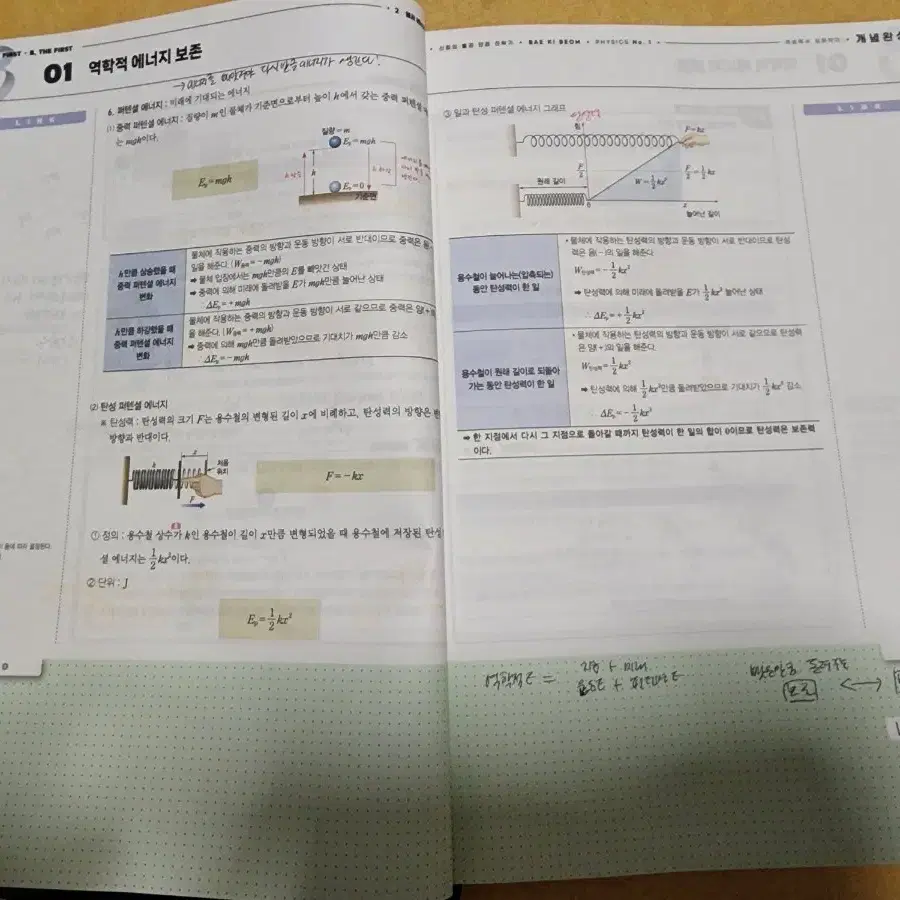 FIRST · B, THE FIRST
2
01 역학적 에너지 보존
LINK
6. 퍼텐셜 에너지 : 미래에 기대되는 에너지
(1) 중력 퍼텐셜 에너지 : 질량이 m인 물체가 기준면으로부터 높이 h에서 갖는 중력 퍼텐셜
는 mgh이다.
Eₚ=mgh
질량=m
Eₚ=mgh
h
Eₚ=0
기준면
h만큼 상승했을 때
중력 퍼텐셜 에너지
변화
물체에 작용하는 중력의 방향과 운동 방향이 서로 반대이므로 중력은
일을 해준다. (W중력=-mgh)
➡ 물체 입장에서는 mgh만큼의 E를 빼앗긴 상태
➡ 중력에 의해 미래에 돌려받을 E가 mgh만큼 늘어난 상태
∴ ΔEₚ=+mgh
h만큼 하강했을 때
중력 퍼텐셜 에너지
변화
물체에 작용하는 중력의 방향과 운동 방향이 서로 같으므로 중력은 양(+)
을 해준다. (W중력=+mgh)
➡ 중력에 의해 mgh만큼 돌려받았으므로 기대치가 mgh만큼 감소
∴ ΔEₚ=-mgh
(2) 탄성 퍼텐셜 에너지
※ 탄성력 : 탄성력의 크기 F는 용수철의 변형된 길이 x에 비례하고, 탄성력의 방향은
방향과 반대이다.
k
x
처음
위치
F
F=-kx
① 정의 : 용수철 상수가 k인 용수철이 길이 x만큼 변형되었을 때 용수철에 저장된 탄성
셜 에너지는 1/2kx²이다.
② 단위 : J
Eₚ=1/2kx²
BAE KI BEOM · PHYSICS No. 1
개념완성
LINK
③ 일과 탄성 퍼텐셜 에너지 그래프
탄성력
힘
F=kx
F/2
F/2=1/2kx
원래 길이
W=1/2kx²
0
x
늘어난 길이
용수철이 늘어나는(압축되는)
동안 탄성력이 한 일
• 물체에 작용하는 탄성력의 방향과 운동 방향이 서로 반대이므로 탄성
력은 음(-)의 일을 해준다.
W탄성력=-1/2kx²
➡ 탄성력에 의해 미래에 돌려받을 E가 1/2kx² 늘어난 상태
∴ ΔEₚ=+1/2kx²
용수철이 원래 길이로 되돌아
가는 동안 탄성력이 한 일
• 물체에 작용하는 탄성력의 방향과 운동 방향이 서로 같으므로 탄성력
은 양(+)의 일을 해준다.
W탄성력=1/2kx²
➡ 탄성력에 의해 1/2kx²만큼 돌려받았으므로 기대치가 1/2kx² 감소
∴ ΔEₚ=-1/2kx²
➡ 한 지점에서 다시 그 지점으로 돌아갈 때까지 탄성력이 한 일의 합이 0이므로 탄성력은 보존력
이다.
지금 + 미래
역학적E = 운동E + 퍼텐셜E